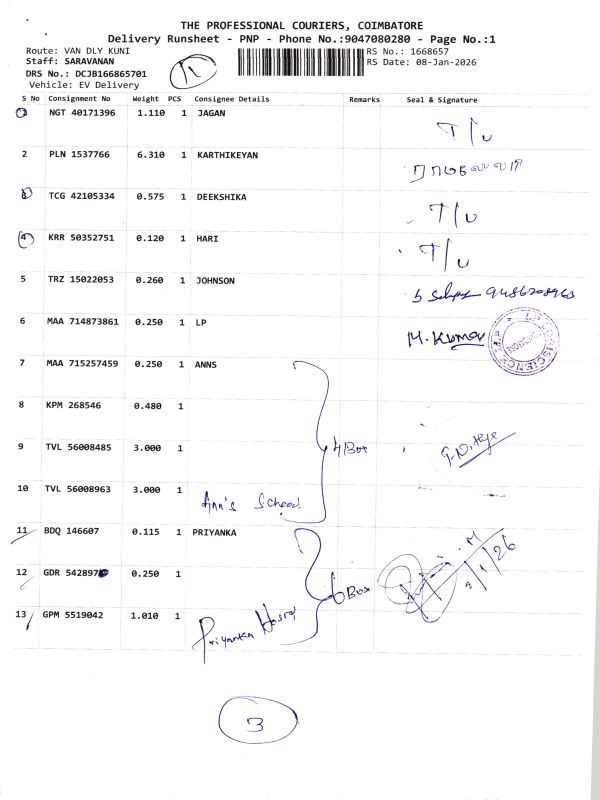 THE PROFESSIONAL COURIERS, COIMBATORE
Delivery Runsheet - PNP - Phone No.:9047080280 - Page No.:1
Route: VAN DLY KUNI
Staff: SARAVANAN
DRS No.: DCJB166865701
Vehicle: EV Delivery
11
RS No.: 1668657
RS Date: 08-Jan-2026
S No Consignment No Weight PCS Consignee Details Remarks Seal & Signature
NGT 40171396 1.110 1 JAGAN T/U
2 PLN 1537766 6.310 1 KARTHIKEYAN
3 TCG 42105334 0.575 1 DEEKSHIKA T/U
4 KRR 50352751 0.120 1 HARI T/U
5 TRZ 15022053 0.260 1 JOHNSON
6 MAA 714873861 0.250 1 LP M. Kumar
7 MAA 715257459 0.250 1 ANNS
8 KPM 268546 0.480 1
9 TVL 56008485 3.000 1 4 Box
10 TVL 56008963 3.000 1 Ann's School
11 BDQ 146607 0.115 1 PRIYANKA
12 GDR 542897 0.250 1 6 Box
13 GPM 5519042 1.010 1 Priyanka
3